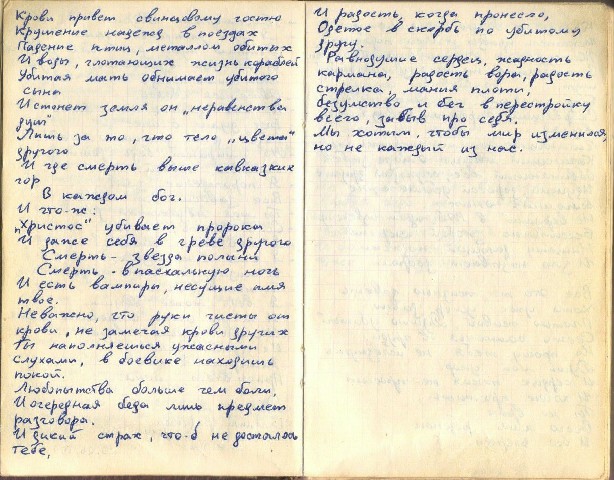 Крови привет свинцовому гостю
Крушение надежд в поездах
Падение птиц, металлом обитых
И воды, глотающих жизнь кораблей
Убитая мать обнимает убитого
сына
И стонет земля он „неравенства
душ"
Лишь за то, что тело „цвета"
другого
И где смерть выше кавказких
гор
В каждом бог.
И что-ж:
„Христос" убивает пророка
И даже себя в чреве другого
Смерть - звезда полыни
Смерть - в пасхальную ночь
И есть вампиры, несущие имя
твое.
Неважно, что руки чисты от
крови, не замечая крови других
Ты наполняешься ужасными
слухами, в боевике находишь
покой.
Любопытства больше чем боли,
И очередная беда лишь предмет
разговора.
И дикий страх, что-б не досталось
тебе,
И радость, когда пронесло,
Одетое в скорбь по убитому
другу.
Равнодушие сердец, жадность
кармана, радость вора, радость
стрелка, мания плоти,
безумство и бег в перестройку
всего, забыв про себя.
Мы хотим, чтобы мир изменился,
но не каждый из нас.